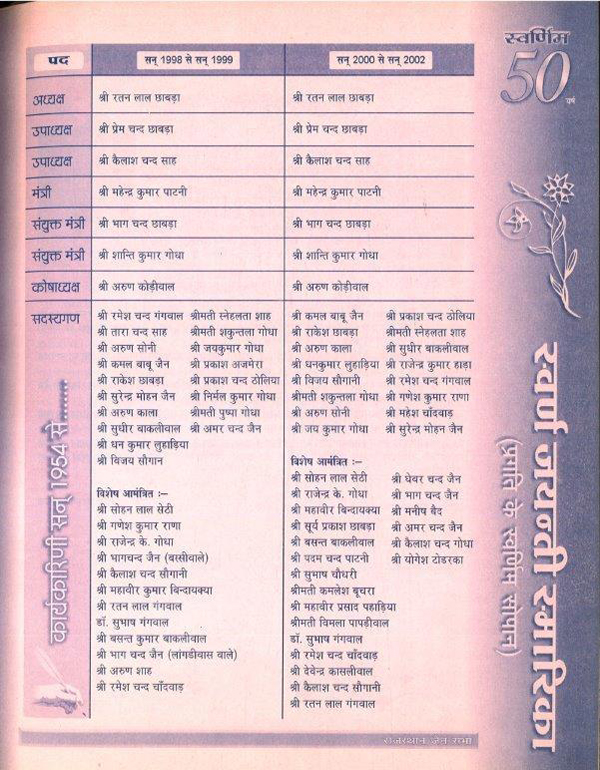 स्वर्णिम
50 वर्ष
पद सन् 1998 से सन् 1999 सन् 2000 से सन् 2002
अध्यक्ष श्री रतन लाल छाबड़ा श्री रतन लाल छाबड़ा
उपाध्यक्ष श्री प्रेम चन्द छाबड़ा श्री प्रेम चन्द छाबड़ा
उपाध्यक्ष श्री कैलाश चन्द साह श्री कैलाश चन्द साह
मंत्री श्री महेन्द्र कुमार पाटनी श्री महेन्द्र कुमार पाटनी
संयुक्त मंत्री श्री भाग चन्द छाबड़ा श्री भाग चन्द छाबड़ा
संयुक्त मंत्री श्री शान्ति कुमार गोधा श्री शान्ति कुमार गोधा
कोषाध्यक्ष श्री अरुण कोड़ीवाल श्री अरुण कोड़ीवाल
सदस्यगण
श्री रमेश चन्द गंगवाल श्रीमती स्नेहलता शाह
श्री तारा चन्द साह श्रीमती शकुन्तला गोधा
श्री अरुण सोनी श्री जयकुमार गोधा
श्री कमल बाबू जैन श्री प्रकाश अजमेरा
श्री राकेश छाबड़ा श्री प्रकाश चन्द ठोलिया
श्री सुरेन्द्र मोहन जैन श्री निर्मल कुमार गोधा
श्री अरुण काला श्रीमती पुष्पा गोधा
श्री सुधीर बाकलीवाल श्री अमर चन्द जैन
श्री धन कुमार लुहाड़िया
श्री विजय सौगान
विशेष आमंत्रित :–
श्री सोहन लाल सेठी
श्री गणेश कुमार राणा
श्री राजेन्द्र के. गोधा
श्री भागचन्द जैन (बस्सीवाले)
श्री कैलाश चन्द सौगानी
श्री महावीर कुमार बिन्दायक्या
श्री रतन लाल गंगवाल
डॉ. सुभाष गंगवाल
श्री बसन्त कुमार बाकलीवाल
श्री भाग चन्द जैन (लांगडीवास वाले)
श्री अरुण शाह
श्री रमेश चन्द चाँदवाड़
श्री कमल बाबू जैन श्री प्रकाश चन्द ठोलिया
श्री राकेश छाबड़ा श्रीमती स्नेहलता शाह
श्री अरुण काला श्री सुधीर बाकलीवाल
श्री धनकुमार लुहाड़िया श्री राजेन्द्र कुमार हाड़ा
श्री विजय सौगानी श्री रमेश चन्द गंगवाल
श्रीमती शकुन्तला गोधा श्री गणेश कुमार राणा
श्री अरुण सोनी श्री महेश चाँदवाड़
श्री जय कुमार गोधा श्री सुरेन्द्र मोहन जैन
विशेष आमंत्रित :–
श्री सोहन लाल सेठी श्री घेवर चन्द जैन
श्री राजेन्द्र के. गोधा श्री भाग चन्द जैन
श्री महावीर बिन्दायक्या श्री मनीष बैद
श्री सूर्य प्रकाश छाबड़ा श्री अमर चन्द जैन
श्री बसन्त बाकलीवाल श्री कैलाश चन्द गोधा
श्री पदम चन्द पाटनी श्री योगेश टोडरका
श्री सुभाष चौधरी
श्रीमती कमलेश बूचरा
श्री महावीर प्रसाद पहाड़िया
श्रीमती विमला पापड़ीवाल
डॉ. सुभाष गंगवाल
श्री रमेश चन्द चाँदवाड़
श्री देवेन्द्र कासलीवाल
श्री कैलाश चन्द सौगानी
श्री रतन लाल गंगवाल
कार्यकारिणी सन् 1954 से.......
स्वर्ण जयन्ती स्मारिका
(प्रगति के स्वर्णिम सोपान)
राजस्थान जैन सभा